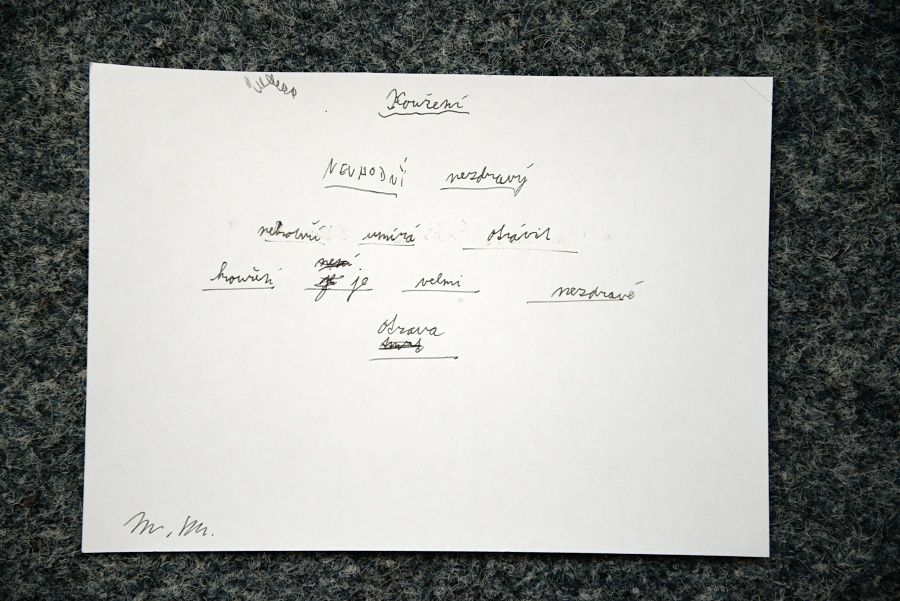 Kouření
NEVHODNÍ nezdravý
nekouří umírá otrávit
kouřit je velmi nezdravé
Otrava
M. M.